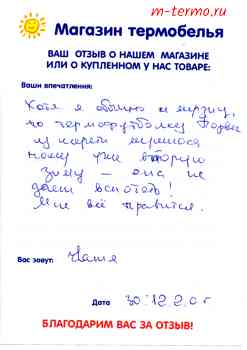 m-termo.ru
Магазин термобелья
ВАШ ОТЗЫВ О НАШЕМ МАГАЗИНЕ
ИЛИ О КУПЛЕННОМ У НАС ТОВАРЕ:
Ваши впечатления:
Хотя я обычно и мерзну,
но термофутболку
из шерсти мериноса
ношу уже вторую
зиму – она не
даёт вспотеть!
Мне всё нравится.
Вас зовут: Настя
Дата 30.12
БЛАГОДАРИМ ВАС ЗА ОТЗЫВ!